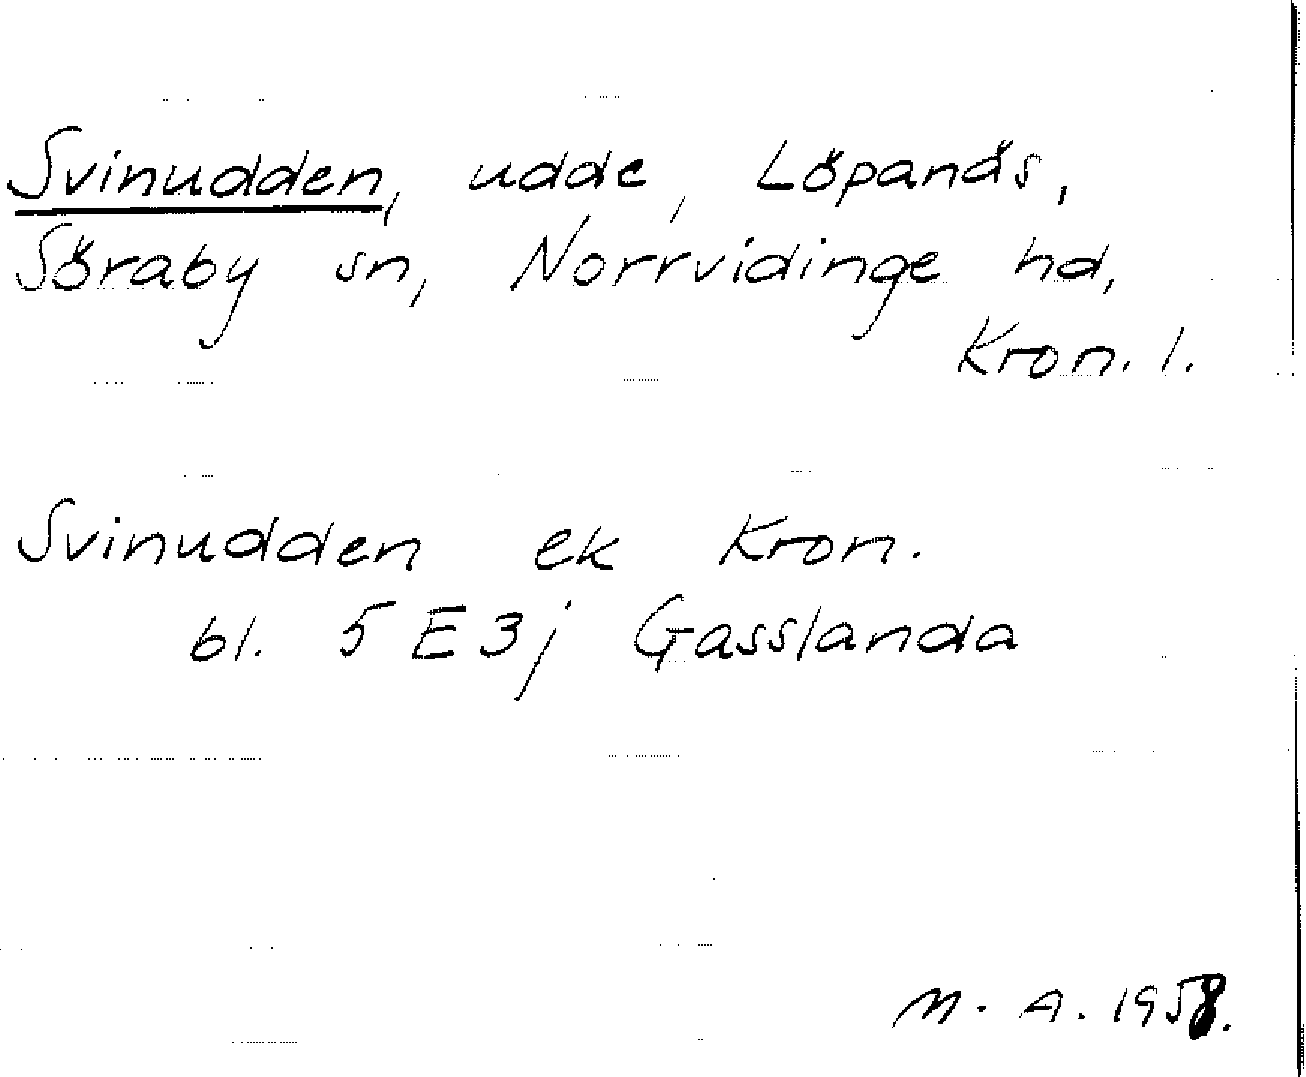 Svinudden, udde, Löpanäs,
Söraby sn, Norrvidinge hd,
Kron. l.
Svinudden ek Kron.
bl. 5 E 3j Gasslanda
M. A. 1958.